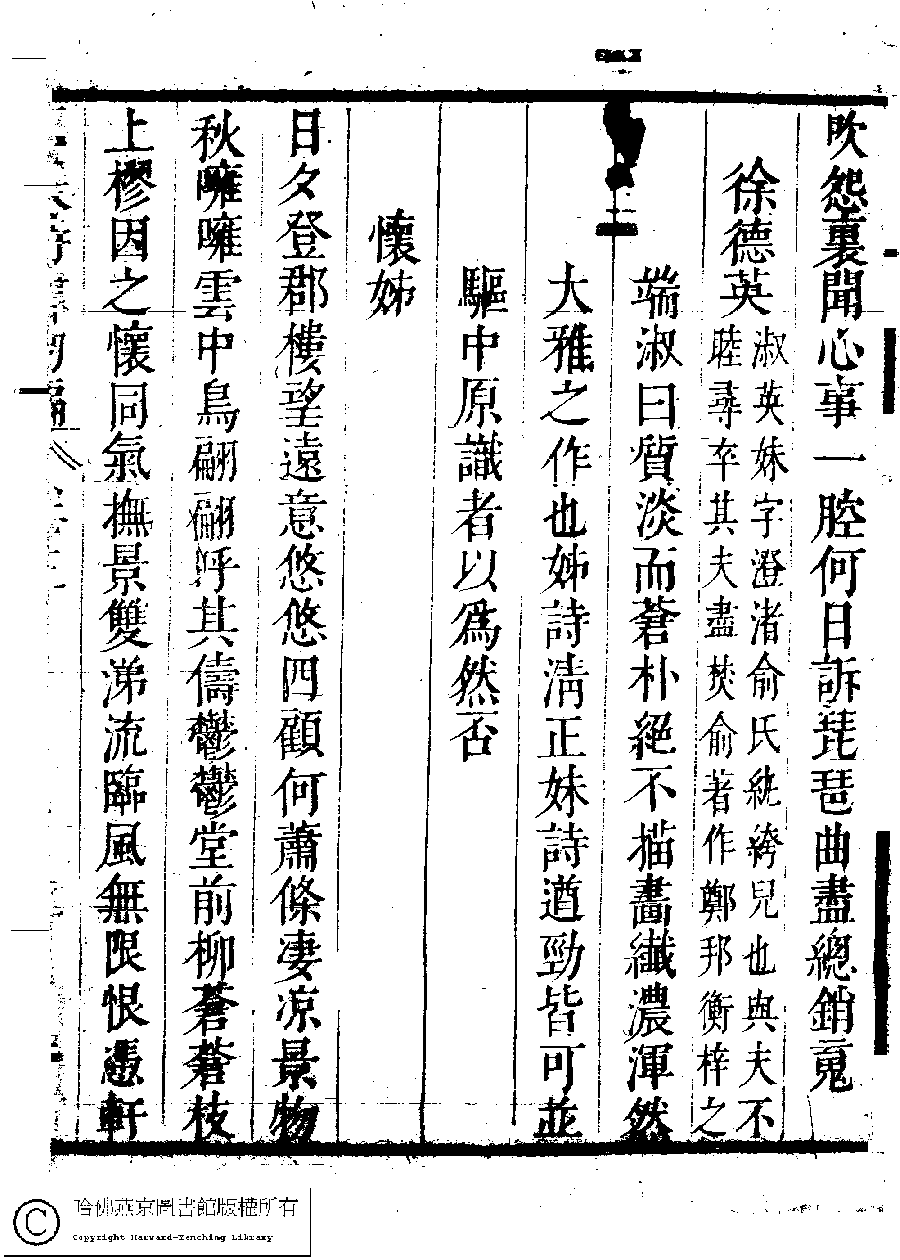 吹怨裏聞心事一腔何日訴琵琶曲盡總銷䰟
徐德英
淑英妹字澄渚俞氏統綺兒也與夫不
睦尋卒其夫盡焚俞著作鄭邦衡梓之
端淑曰質淡而蒼朴絕不描畵纎濃渾然
大雅之作也姊詩清正妹詩遒勁皆可並
驅中原識者以為然否
懷姊
日夕登郡樓望遠意悠悠四顧何蕭條凄凉景物
秋嗈嗈雲中鳥翩翩呼其儔鬱鬱堂前柳蒼蒼枝
上樛因之懷同氣撫景雙涕流臨風無限恨憑軒
哈佛燕京圖書館版權所有
Copyright Harvard-Yenching Library